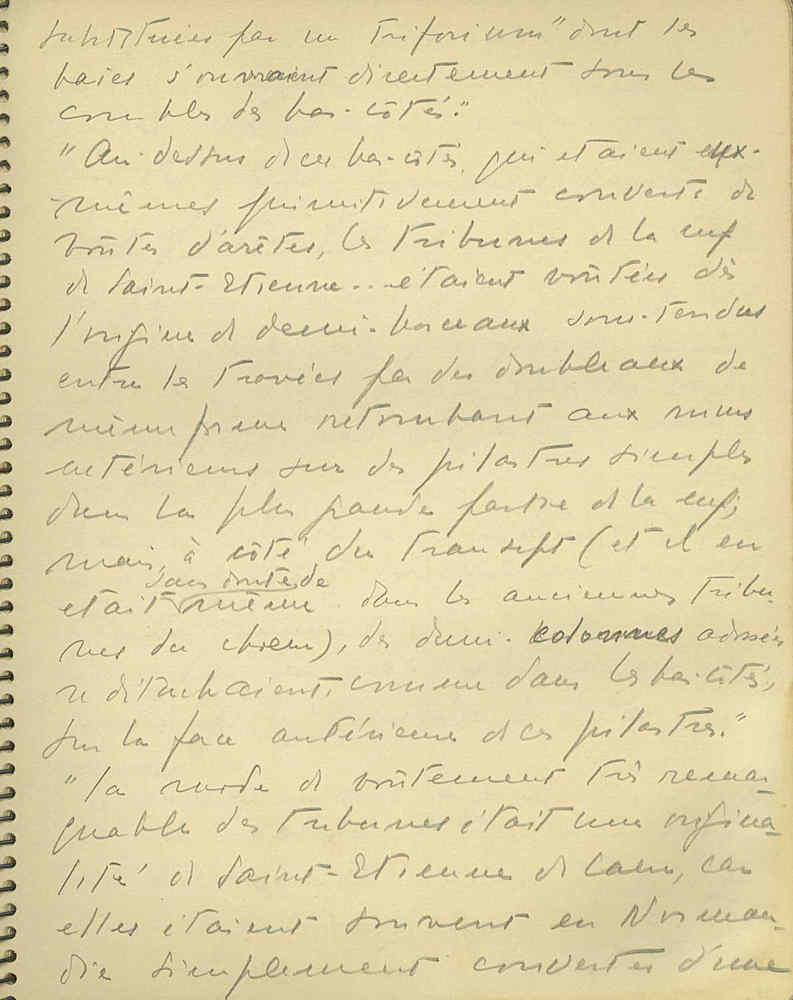 substituées par un triforium" dont les
baies s'ouvraient directement sous les
combles des bas-côtés."
"Au-dessus de ces bas-côtés, qui etaient eux-
-mêmes primitivement couverts de
voûtes d'arêtes, les tribunes de la nef
de Saint-Etienne... étaient voûtées dès
l'origine de demi-berceaux sous-tendus
entre les travées par des doubleaux de
même forme retombant aux murs
extérieurs sur des pilastres simples
dans la plus grande partie de la nef;
mais, à côté du transept (et il en
etait sans doute de même dans les anciennes tribu-
nes du chœur), des demi-colonnes adossées
se détachaient, comme dans les bas-côtés,
sur la face antérieure de ces pilastres."
"Le mode de voûtement très remar-
quable des tribunes était une origina-
lité de Saint-Etienne de Caen, car
elles étaient souvent en Norman-
die simplement couvertes d'une